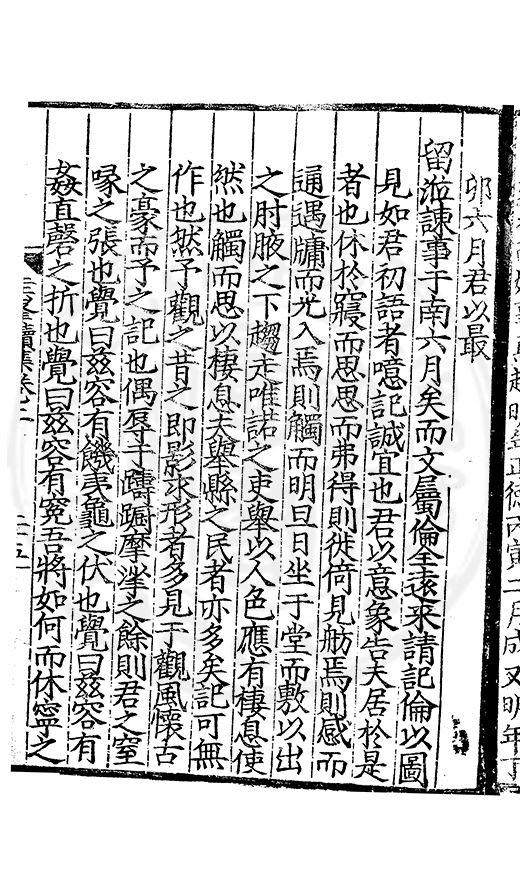 正德丙寅二月成又明年丁
卯六月君以最
留涖諫事于南六月矣而文屬倫全遂来請記倫以圖
見如君初語者噫記誠宜也君以意象告夫居於是
者也休於寢而思思而弗得則徙倚見舫焉則感而
通遇牖而光入焉則觸而明旦日坐于堂而敷以出
之肘腋之下趨走唯諾之吏舉以人色應有棲息使
然也觸而思以棲息夫舉縣之民者亦多矣記可無
作也然予觀之昔之即影求形者多見于觀風懷古
之豪而予之記也偶辱于躊蹰摩挲之餘則君之窒
喙之張也覺曰兹容有饑夷龜之伏也覺曰兹容有
姦直磬之折也覺曰兹容有寃吾將如何而休寧之
續集卷二
二十五